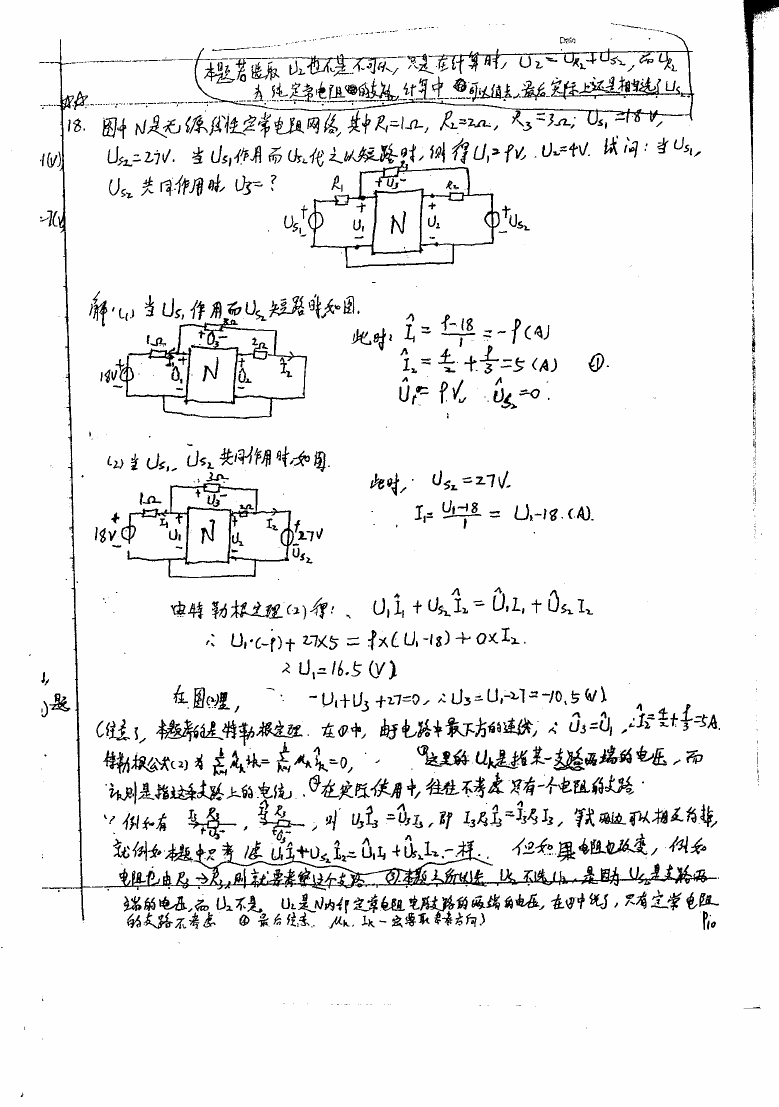 本题若选取 U₂也不是不可以, 只是在计算时, U₂=U_R₂+U_S₂, 而U_R₂
为纯定常电阻的支路, 计算中 可以消去, 最后实际上还是相当选了U_S₂
18. 图中N是无源线性定常电阻网络, 其中R₁=1Ω, R₂=2Ω, R₃=3Ω, U_S₁=18V,
U_S₂=27V. 当U_S₁作用而U_S₂代之以短路时, 测得U₁=9V, U₂=4V. 试问: 当U_S₁,
U_S₂共同作用时, U₃=?
R₁ + U₃ - R₂
U_S₁ + - + U₁ - N + U₂ - + - U_S₂
解: (1) 当U_S₁作用而U_S₂短路时, 如图.
此时: Î₁ = (9-18)/1 = -9(A)
Î₂ = 4/2 + 9/3 = 5(A) ①.
Û₁ = 9V, Û_S₂=0.
1Ω 3Ω + Û₃ - 2Ω
18V + - Î₁ + Û₁ - N + Û₂ - Î₂
(2) 当U_S₁, U_S₂共同作用时, 如图.
此时, U_S₂=27V.
I₁ = (U₁-18)/1 = U₁-18.(A).
1Ω 3Ω + U₃ - 2Ω
18V + - I₁ + U₁ - N + U₂ - I₂ + 27V - U_S₂
由特勒根定理(2)得: U₁Î₁ + U_S₂Î₂ = Û₁I₁ + Û_S₂I₂
∴ U₁·(-9) + 27×5 = 9×(U₁-18) + 0×I₂.
∴ U₁=16.5 (V)
在图(2)里, ∵ -U₁+U₃+27=0, ∴U₃=U₁-27=-10.5(V)
(注意, 本题考的是特勒根定理. 在①中, 由于电路中最下方的连线, ∴ Û₃=Û₁, ∴Î₂=4/2+9/3=5A.
特勒根公式(2)为 =0, ①这里的U_k是指某一支路两端的电压, 而
I_k则是指这条支路上的电流. ②在实际使用中, 往往不考虑只有一个电阻的支路.
∵ 例如有 I₃ R₃ + U₃ -, Î₃ R₃ + Û₃ -, 则 U₃Î₃=Û₃I₃, 即 I₃R₃Î₃=Î₃R₃I₃, 等式两边可以相互约掉,
就例如本题中只考虑 U₁Î₁+U_S₂Î₂=Û₁I₁+Û_S₂I₂一样. 但如果电阻也改变, 例如
电阻也由R₃→R̂₃, 则就要考虑这个支路. ③本题之所以选 U_S₂不选U₂, 是因为U_S₂是支路两
端的电压, 而U₂不是. U₂是N内部定常电阻支路的两端的电压, 在②中说了, 只有定常电阻
的支路不考虑 ④最后注意, U_k, I_k一定要取参考方向)
P10